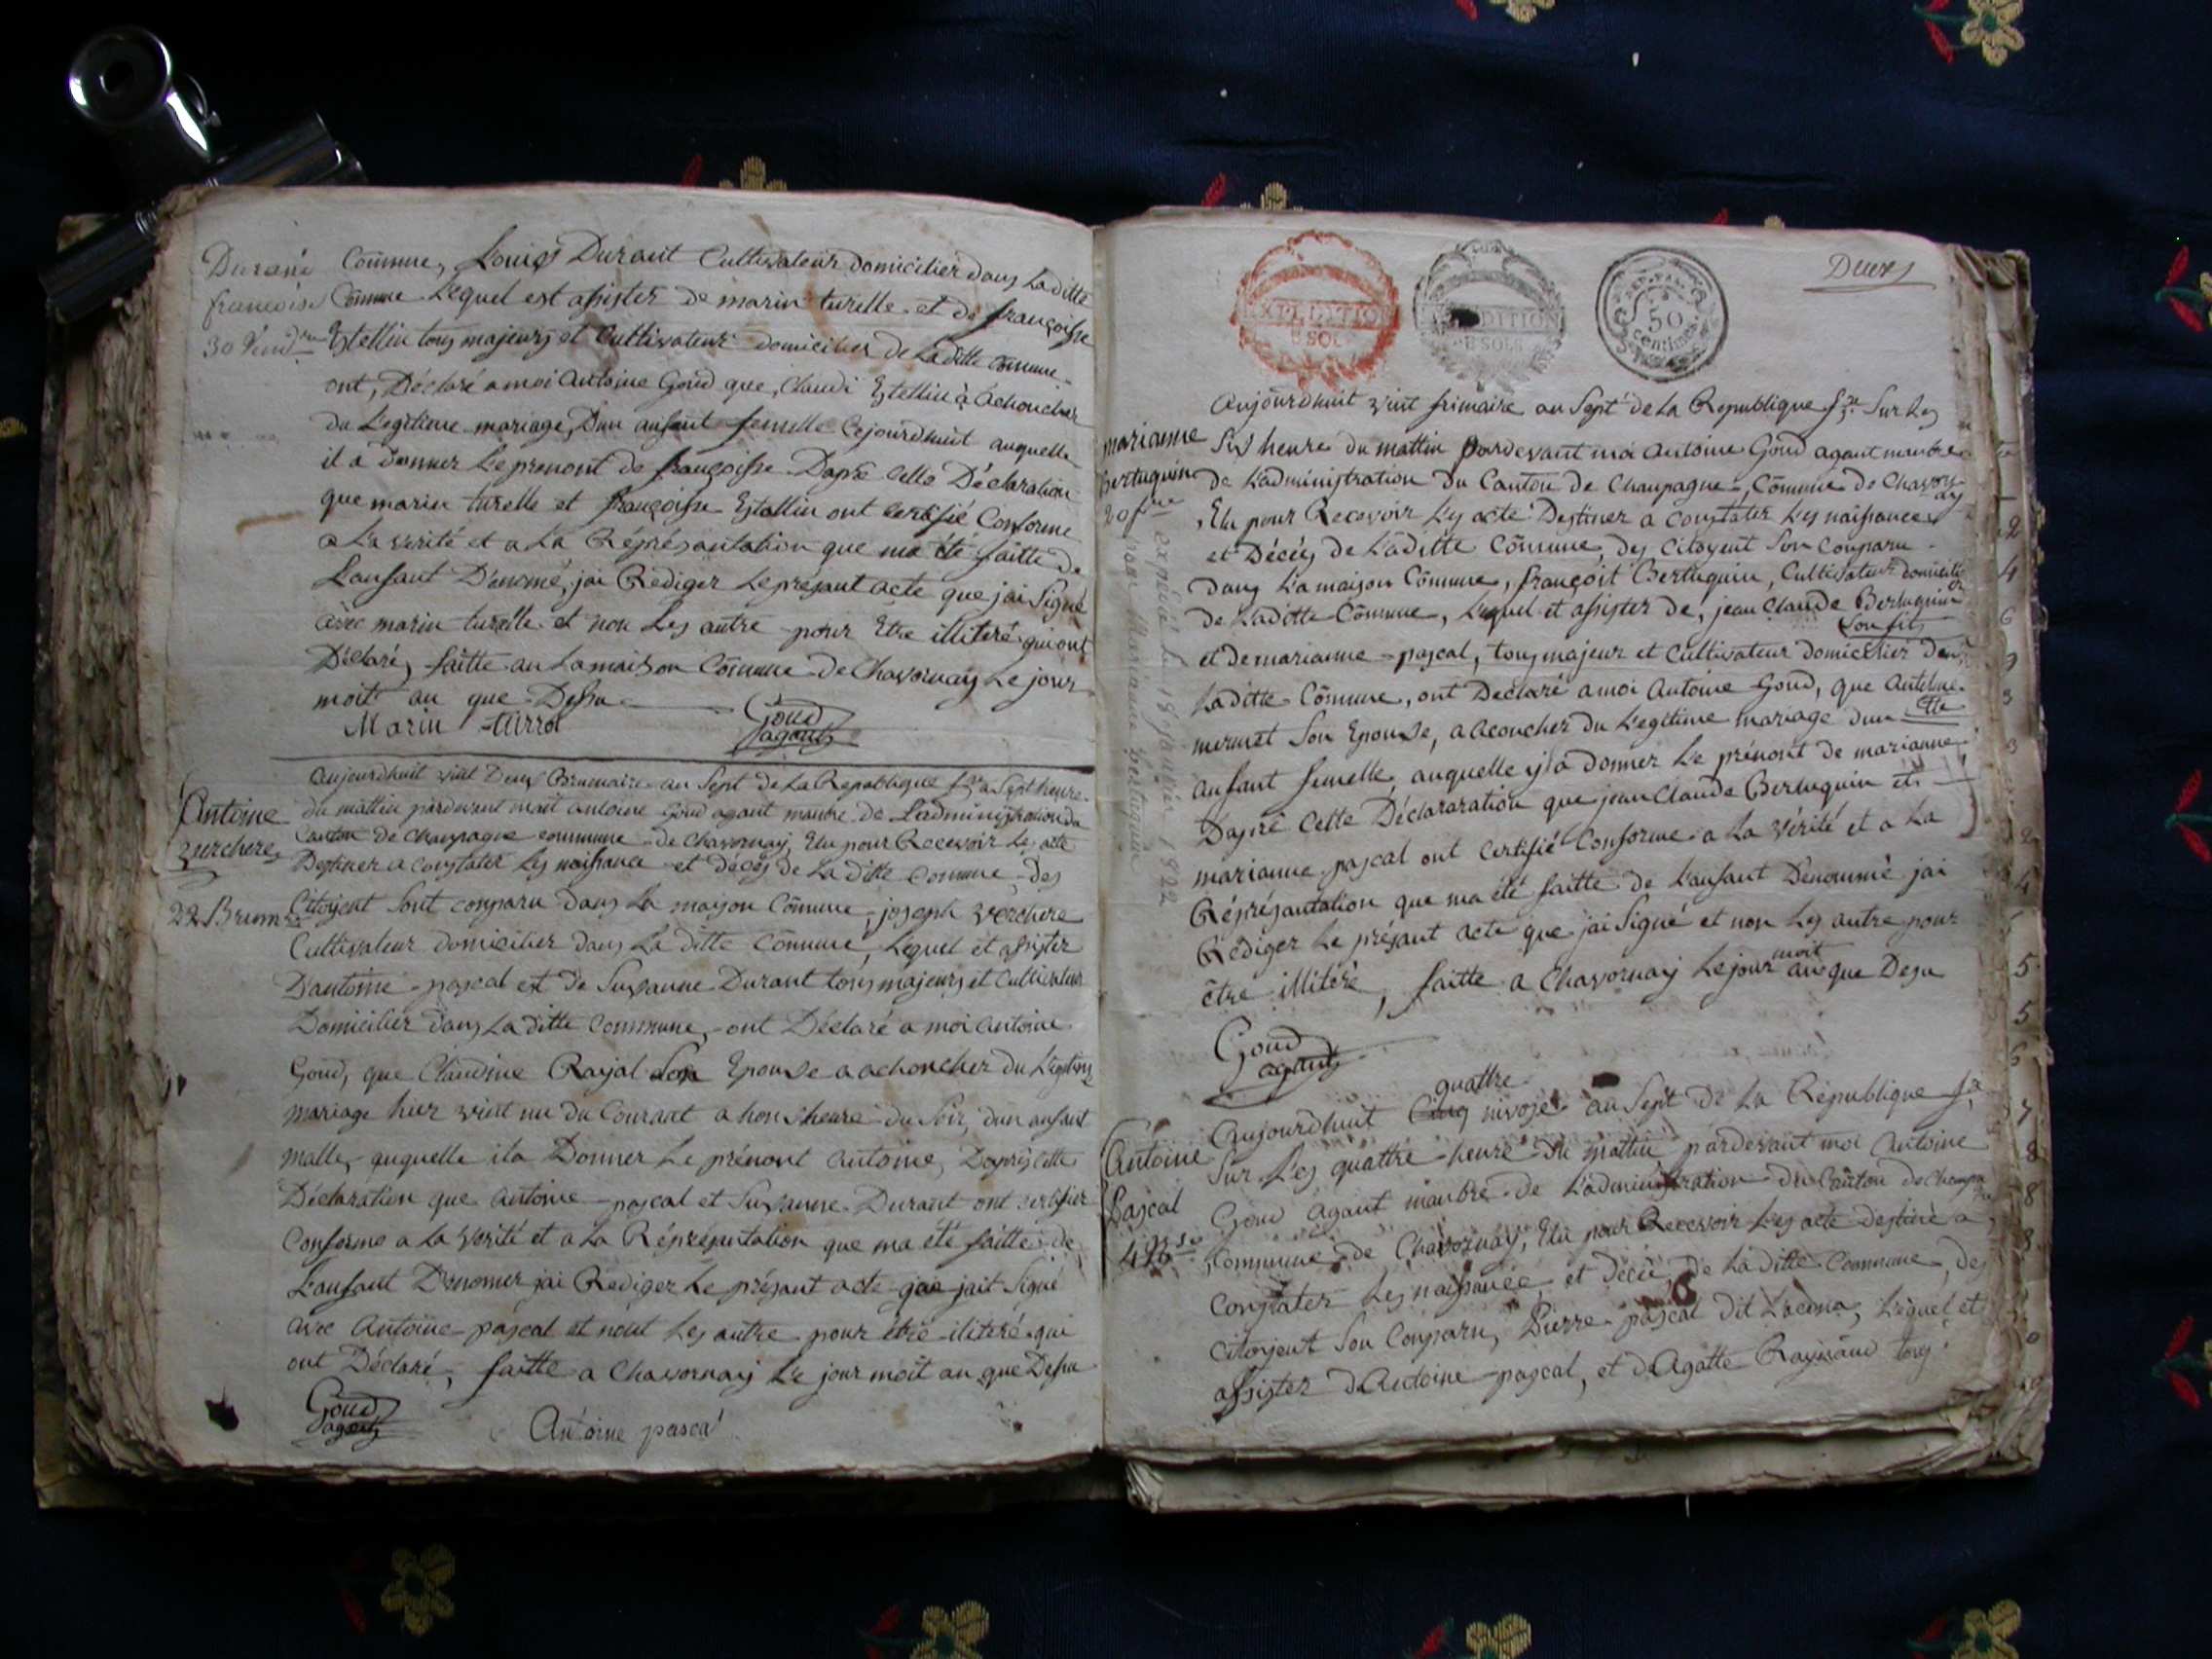 Durané
françoise
30 Vend.re
Comune, Louis Durant Cultivateur domicilier dans Laditte
Comune Lequel est assister de marin turelle et de françoisse
Estellin tous majeurs et Cultivateur domicilier de Laditte Comune
ont, Déclaré a moi Antoine Goud que, Claudi Estellin à Achoucher
du Legitime mariage, Dun anfant femelle Cejourdhuit auquelle
il a Donner Le prenont de françoisse Dapré Cette Déclaration
que marin turelle et françoisse Estallin ont certifié Conforme
a La verité et a La Réprésantation que ma été faitte de
Lanfant Dénomé, jai Rediger Le présant acte que jai Signé
avec marin turelle et non Les autre pour Etre illiteré qui ont
Déclaré, faitte au La maison Comune de Chavornay Le jour
moit an que Desu
Marin turrel
Goud
agant
Antoine
Zverchere
22 Brum.re
Aujourdhuit vint Deux Brumaire an Sept de La Republique f.se a Sept heure
du mattin pardevant moit antoine Goud agant manbre de Ladministration du
Canton de Champagne commune de Chavornay, Elu pour Recevoir Les acte
Destiner a constater Les naissance et décés de La ditte Commune, des
Citoyent Sont conparu dans La maison Comune, joseph verchere
Cultivateur domicilier dans La ditte Comune, Lequel et assister
Dantoine pascal et de Susanne Durant tous majeurs et Cultivateur
Domicilier dans La ditte Commune, ont Déclaré a moi Antoine
Goud, que Claudine Rayal Son Epouse a achoucher du Légitime
mariage hier vint un du Courant a honse heure du Soir, dun anfant
malle, auquelle ila Donner Le prénont Antoine, Daprès Cette
Déclaration que Antoine pascal et Susanne Durant ont certifier
Conforme a La Vérité et a La Réprésantation que ma été faitte de
Lanfant Dénomer jai Rediger Le présant acte que jait Signé
avec Antoine pascal et nont Les autre pour être iliteré qui
ont Déclaré, faitte a Chavornay Le jour moit an que Desu
Goud
agant
Antoine pascal
EXPEDITION
8 SOLS
EXPEDITION
8 SOLS
50
Centimes
Deux
marianne
Bertuquin
20 f.re
expédié le 18 janvier 1822
pour Marianne Bertuquin
Aujourdhuit vint frimaire an Sept de La Republique f.se Sur Les
Six heure du mattin pardevant moi Antoine Goud agant manbre
de Ladministration du Canton de Champagne, Comune de Chavorn
ay
, Elu pour Recevoir Les acte Destiner a constater Les naissance
et Décés de Laditte Comune, des Citoyent Son Conparu
dans La maison Comune, françoit Bertuquin, Cultivateur domicilier
de Laditte Comune, Lequel et assister de, jean Claude Bertuquin
Son fils
et de marianne pascal, tous majeur et Cultivateur domicilier dans
Laditte Comune, ont Déclaré a moi Antoine Goud, que Antelme
mermet Son Epouse, a Acoucher du Légitime mariage dun
anfant femelle, auquelle il a donner Le prénont de marianne
Dapré Cette Déclararation que jean Claude Bertuquin et
marianne pascal ont certifié Conforme a La Vérité et a La
Réprésantation que ma été faitte de Lanfant Dénommé jai
Rédiger Le présant acte que jai Signé et non Les autre pour
être illiteré, faitte a Chavornay Le jour moit an que Desu
Goud
agant
Antoine
Pascal
4 N.se
Aujourdhuit quattre nivose an Sept de La République f.se
Sur Les quattre heure du mattin pardevant moi Antoine
Goud agant manbre de Ladministration du Canton de Champa
, Commune de Chavornay, Elu pour Recevoir Les acte destiné a
constater Les naissance, et Décés, de La ditte Commune, des
Citoyent Son Conparu, Pierre pascal dit Lacona, Lequel et
assister dAntoine pascal, et dAgatte Raynaud tous